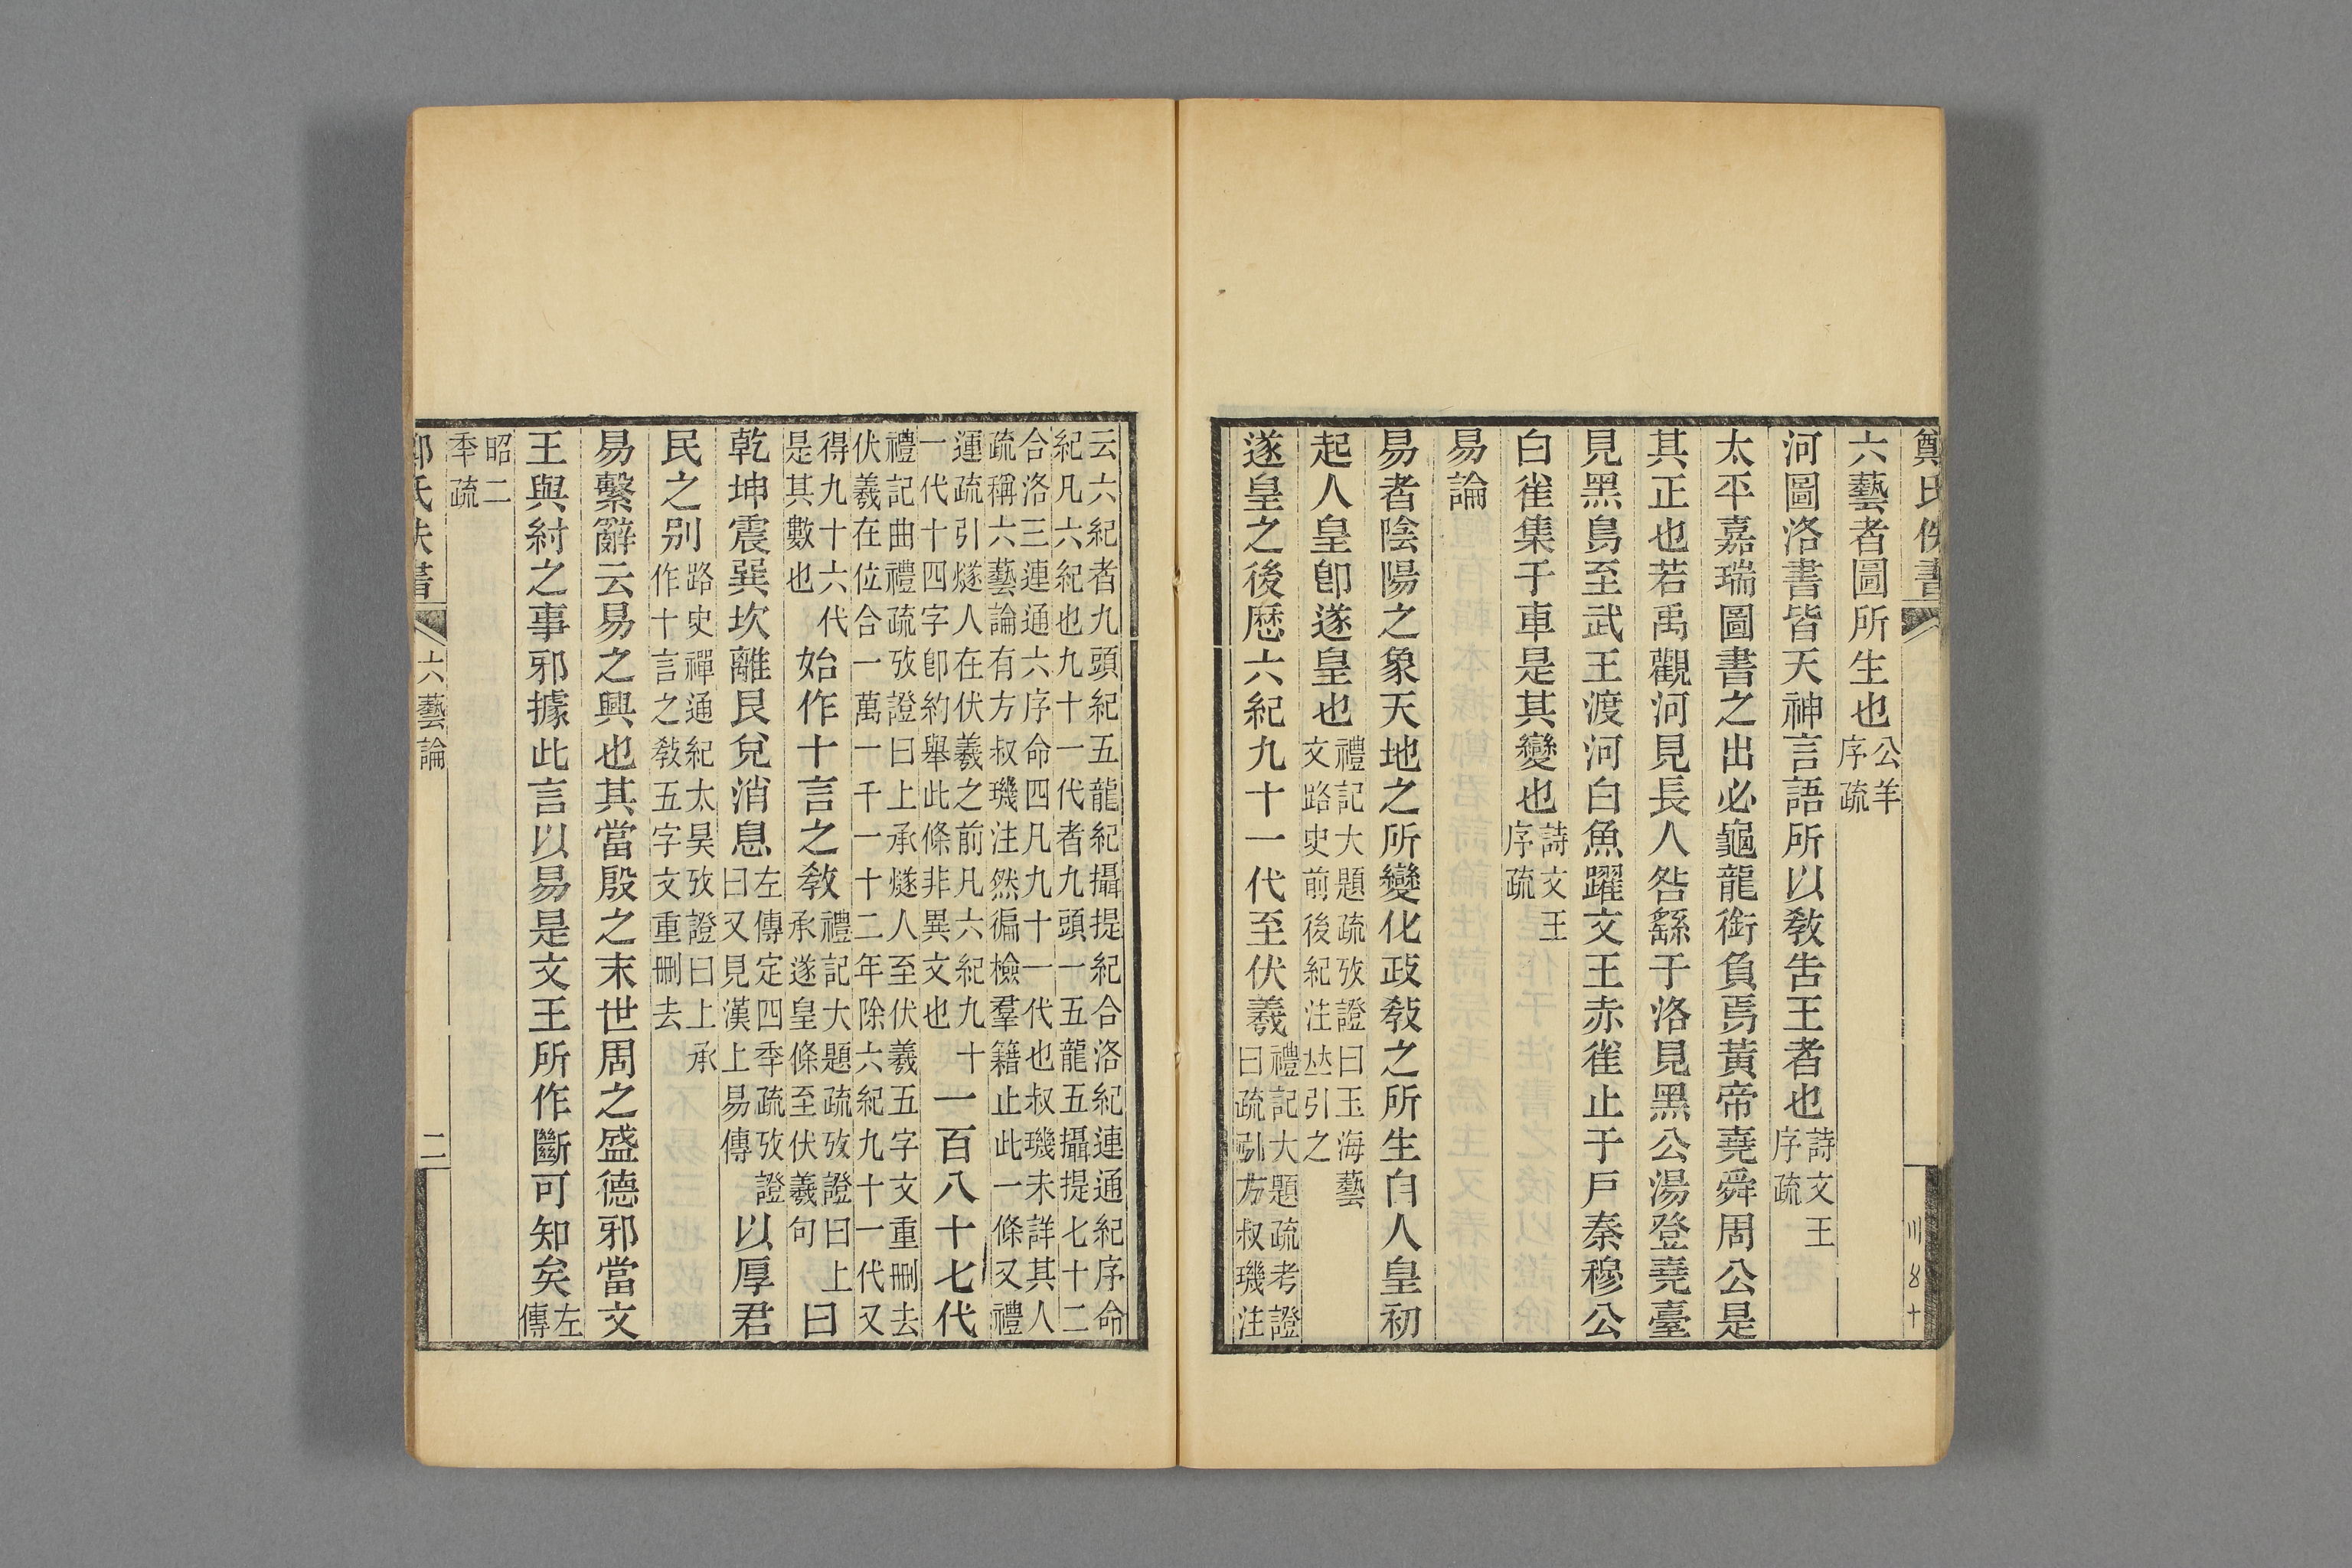 鄭氏佚書
六藝者圖所生也公羊序疏
河圖洛書皆天神言語所以敎吿王者也詩文王序疏
太平嘉瑞圖書之出必龜龍銜負焉黃帝堯舜周公是
其正也若禹觀河見長人咎繇于洛見黑公湯登堯臺
見黑鳥至武王渡河白魚躍文王赤雀止于戶秦穆公
白雀集于車是其變也詩文王序疏
易論
易者陰陽之象天地之所變化政敎之所生自人皇初
起人皇卽遂皇也禮記大題疏攷證曰玉海藝文路史前後紀注竝引之
遂皇之後歷六紀九十一代至伏羲禮記大題疏考證曰疏引方叔璣注
云六紀者九頭紀五龍紀攝提紀合洛紀連通紀序命
紀凡六紀也九十一代者九頭一五龍五攝提七十二
合洛三連通六序命四凡九十一代也叔璣未詳其人
疏稱六藝論有方叔璣注然徧檢羣籍止此一條又禮
運疏引燧人在伏羲之前凡六紀九十
一代十四字卽約舉此條非異文也一百八十七代
禮記曲禮疏攷證曰上承燧人至伏羲五字文重刪去
伏羲在位合一萬一千一十二年除六紀九十一代又
得九十六代是其數也始作十言之敎禮記大題疏攷證曰上承遂皇條至伏羲句曰
乾坤震巽坎離艮兌消息左傳定四季疏攷證曰又見漢上易傳以厚君
民之别路史禪通紀太昊攷證曰上承作十言之敎五字文重刪去
易繫辭云易之興也其當殷之末世周之盛德邪當文
王與紂之事邪據此言以易是文王所作斷可知矣左傳
昭二季疏
鄭氏佚書 六藝論 二